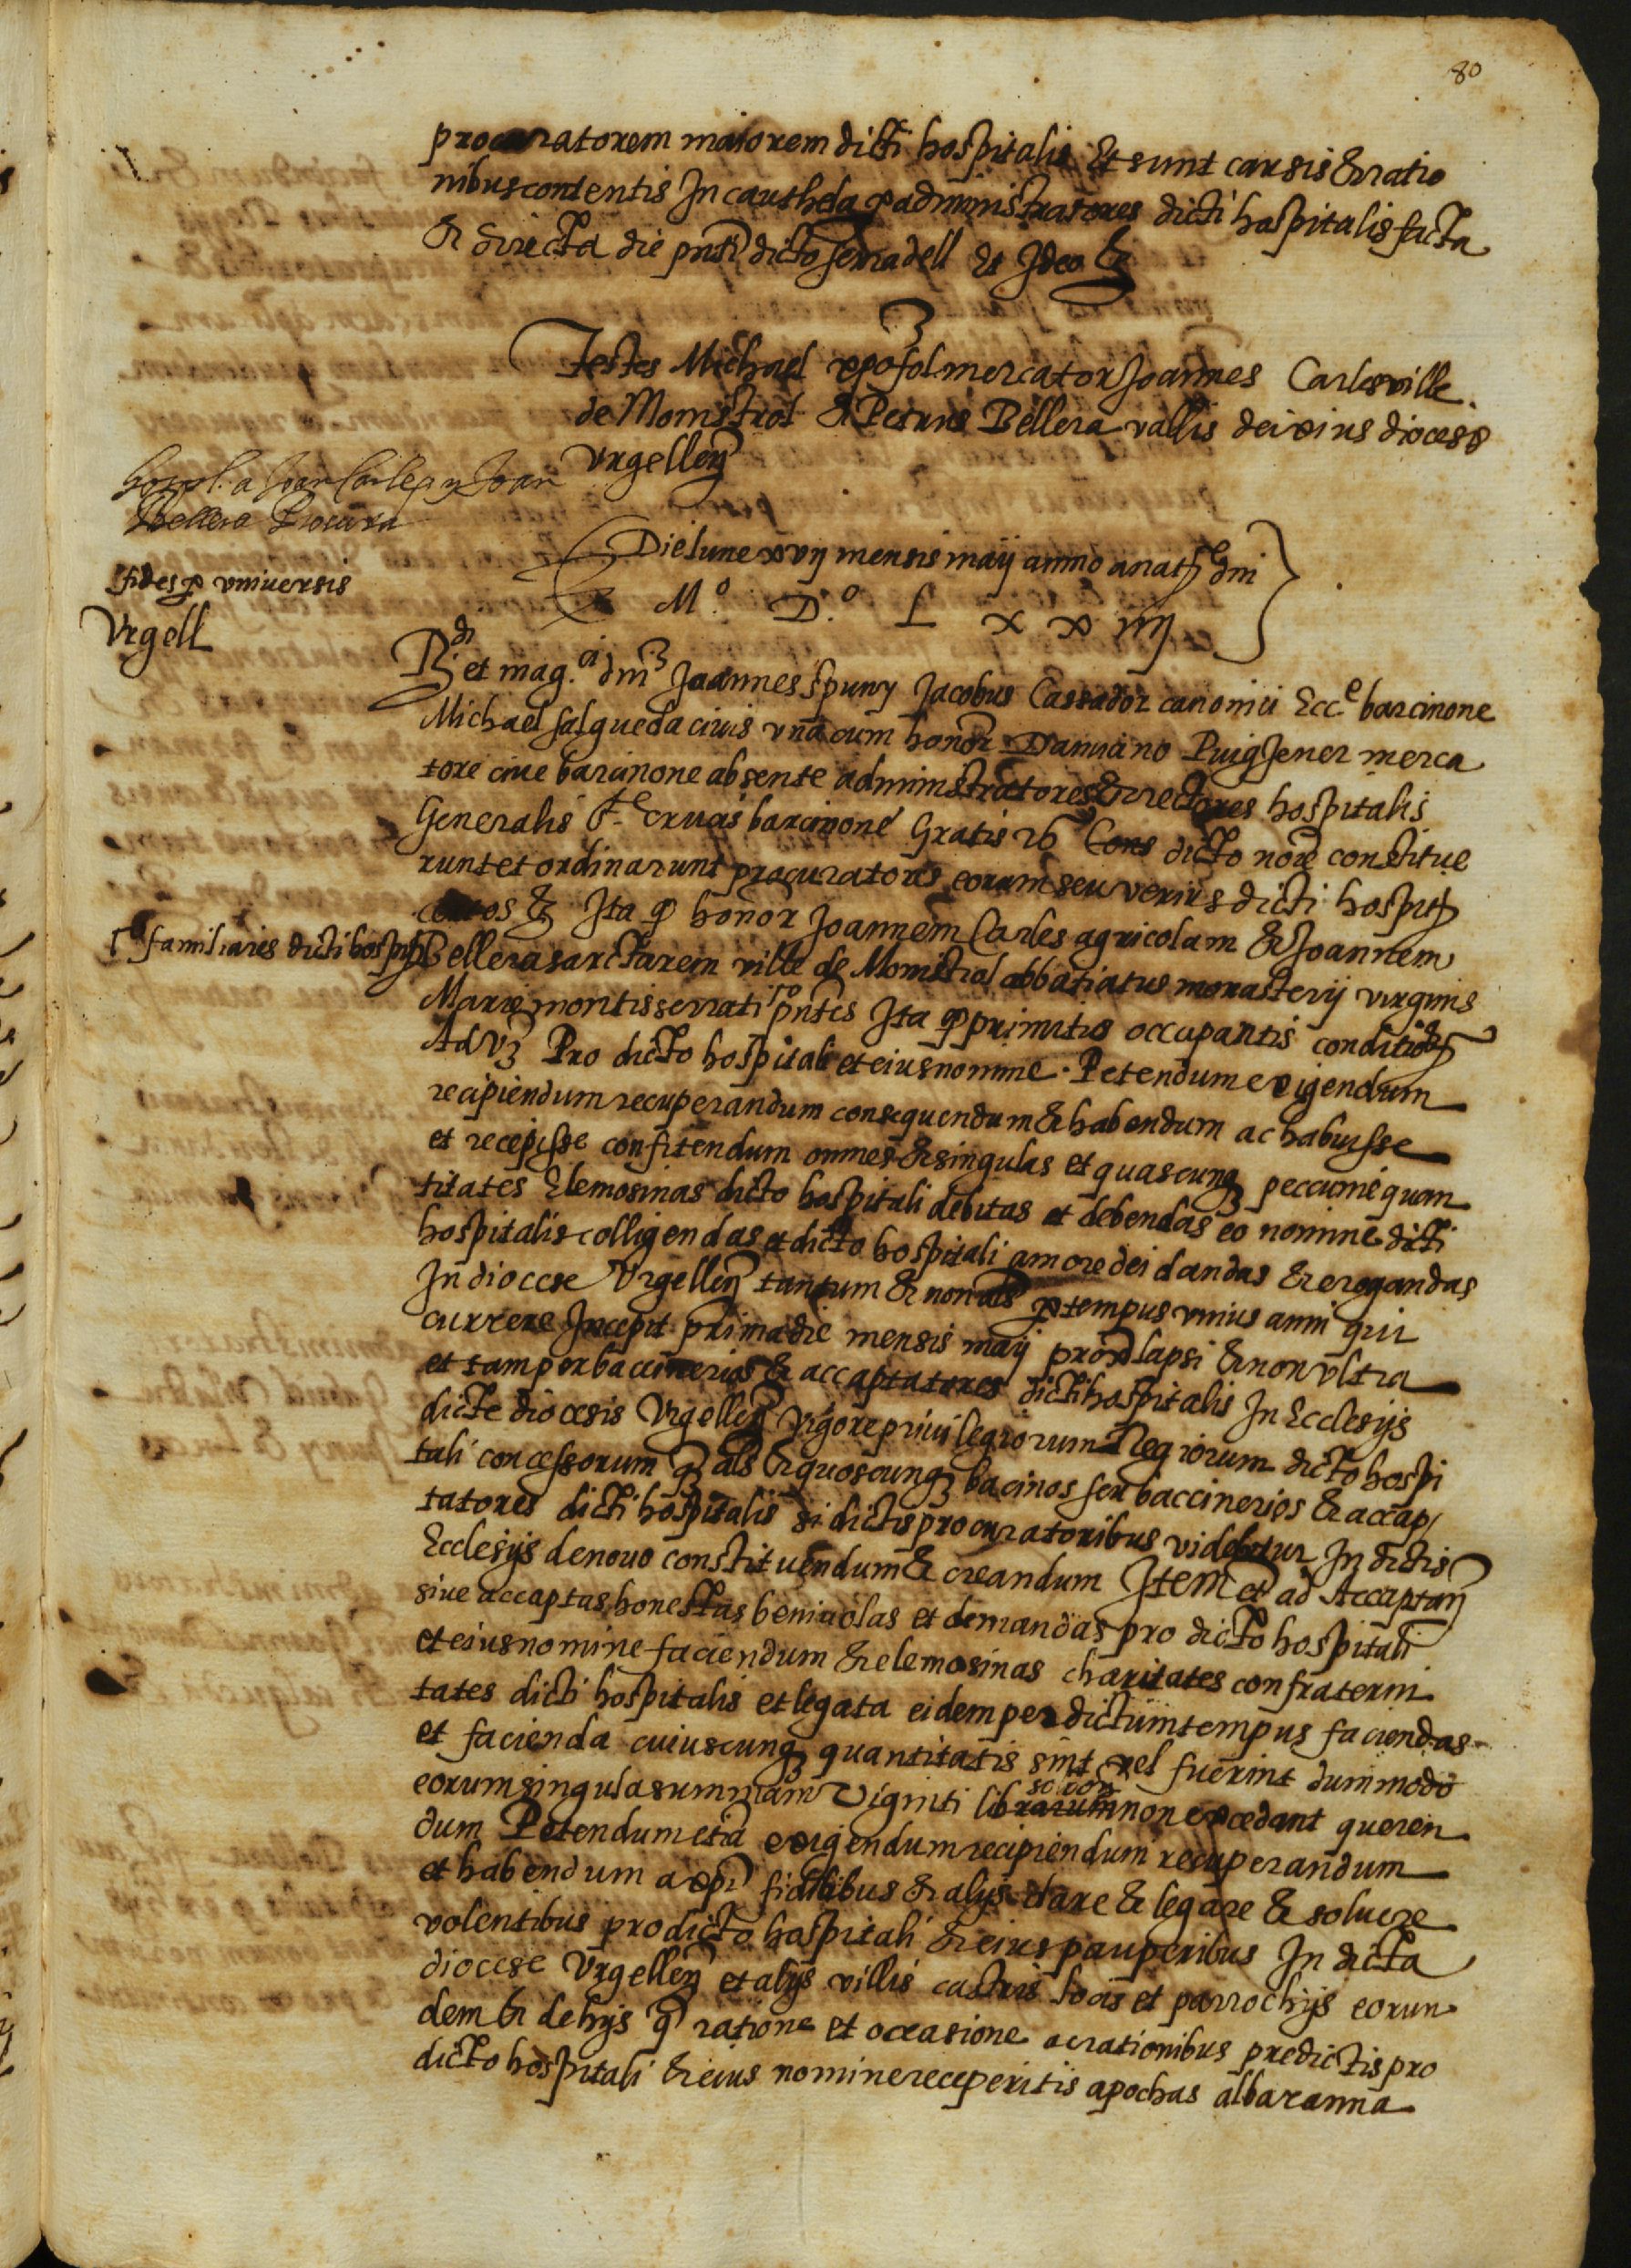 80
procuratorem maiorem dicti hospitalis Et sunt causis & ratio
nibus contentis In cauthela p administratores dicti hospitalis facta
& directa die pnti dicto serradell Et Ideo &
Testes Michael xpofol mercator Joannes Carles ville
de Momistrol & Petrus Bellera vallis dioces
Urgelleñ
hospl. a Joan Carles y Joan
Bellera Procura
fides p universis
Urgell
Die lune xvij mensis maij anno a nat dni
M.º D.º L x x iiij
R.di et mag.ci dm Joannes spuny Jacobus Cassador canonici Ecc.e barcinone
Michael salgueda civis una cum honor Damiano Puigjener merca
tore cive barcinone absente administratores & rectores hospitalis
Generalis s.te crucis barcinone Gratis Cons dicto noïe constitue
runt et ordinarunt procuratores eorum seu verius dicti hospit
certos & Ita q honor Joannem Carles agricolam & Joannem
familiares dicti hospit
Bellera sarctorem ville de Momistrol abbatiatus monasterij virginis
Marie montisserrati pntes Ita q primitus occupantis conditio
Ad v3 Pro dicto hospitali et eius nomine. Petendum exigendum
recipiendum recuperandum consequendum & habendum ac habuisse
et recepisse confitendum omnes & singulas et quascunq peccunie quan
titates Elemosinas dicto hospitali debitas et debendas eo nomine dicti
hospitalis colligendas et dicto hospitali amore dei dandas & erogandas
In diocese Urgelleñ tantum & non als p tempus unius anni qui
currere Incepit prima die mensis maij prox lapsi & non ultra
et tam per baccinerios & accaptatores dicti hospitalis In Ecclesijs
dicte diocesis Urgelleñ vigore privilegiorum Regiorum dicto hospi
tali concessorum q als & quoscunq bacinos seu baccinerios & accap
tatores dicti hospitalis si dictis procuratoribus videbitur In dictis
Ecclesijs denovo constituendum & creandum Item et ad Accaptam
sive accaptas honestas benivolas et demandas pro dicto hospitali
et eius nomine faciendum & elemosinas charitates confraterni
tates dicti hospitalis et legata eidem per dictum tempus faciendas
et facienda cuiuscunq quantitatis sint vel fuerint dummodo
solidor
eorum singula summam viginti librarum non excedant queren
dum Petendum etiã exigendum recipiendum recuperandum
et habendum a xpi fidelibus & alijs dare & legare & solvere
volentibus pro dicto hospitali & eius pauperibus In dicta
diocese Urgelleñ et alijs villis castris locis et parrochijs eorun
dem & de hijs q ratione et occasione ac rationibus predictis pro
dicto hospitali & eius nomine receperitis apochas albaranna